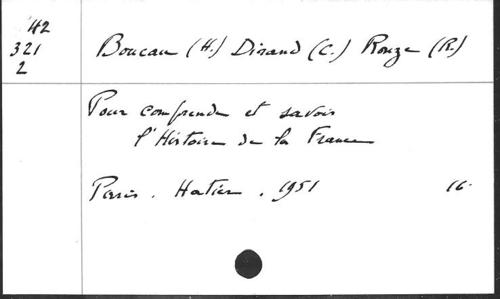 42
321
2
Boucau (H.) Dinand (C.) Rouze (R.)
Pour comprendre et savoir
l'Histoire de la France
Paris. Hatier. 1951 16.